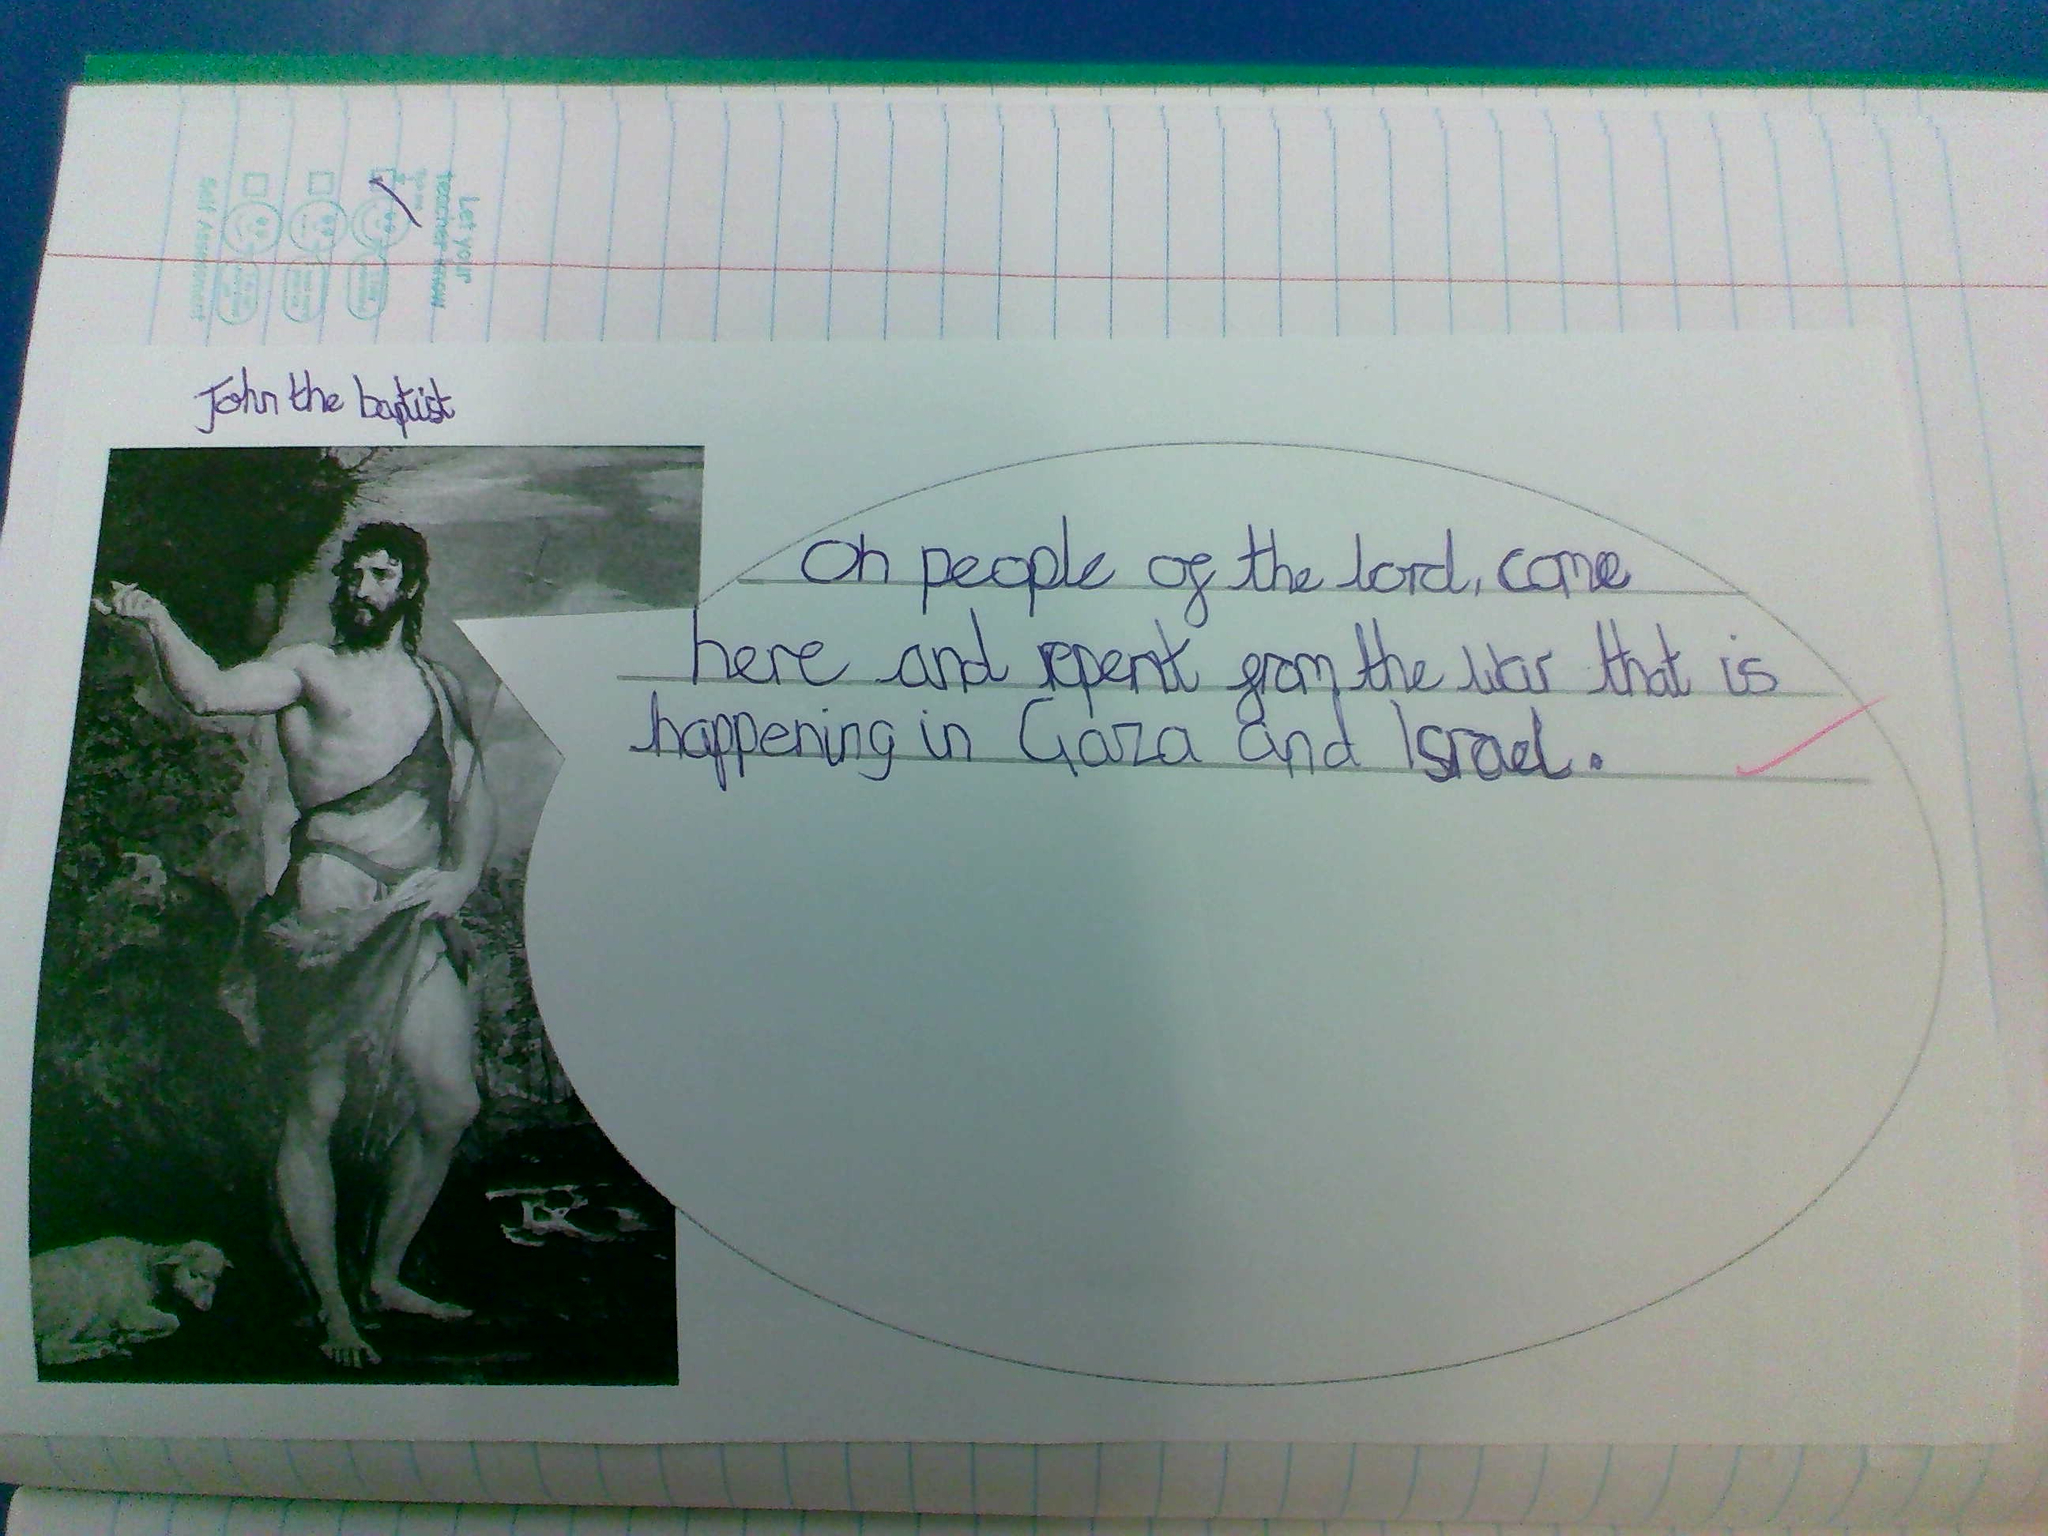 Let your
teacher know
Self Assessment
John the baptist
Oh people of the lord, come
here and repent from the war that is
happening in Gaza and Israel.